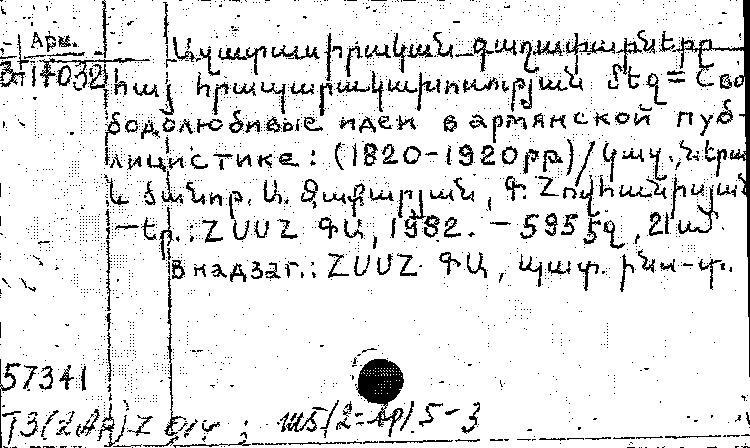 Арм.
Ազատասիրական գաղափարները
Вп14032
հայ հրապարակախոսության մեջ = Сво
бодолюбивые идеи в армянской пуб-
лицистике: (1820-1920рр) / կազ., ներած
և ծանոթ. Ա. Զաքարյան, Փ. Հովհաննիսյան
- Եր.: ՀՍՍՀ ԳԱ, 1982. - 595 էջ, 21 սմ.
в надзаг.: ՀՍՍՀ ԳԱ, պատ. ինս-տ.
57341
Т3(2Ар)7 ; Ш5(2=Ар)5-3